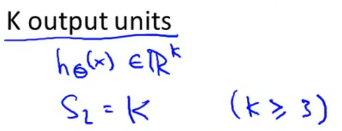 K output units
h_Θ(x) ∈ ℝ^K
S_L = K (K ≥ 3)